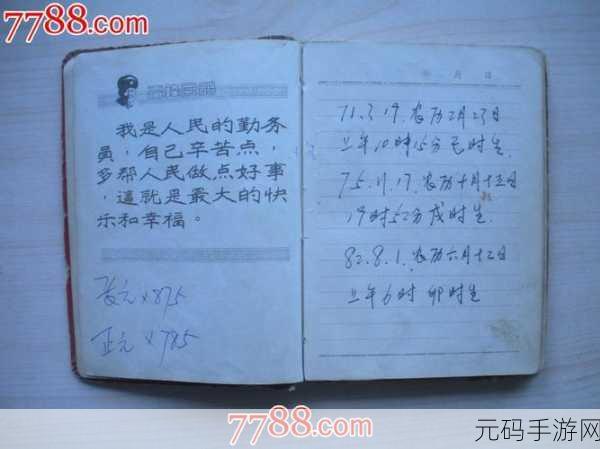 7788.com
我是人民的勤务
员，自己辛苦点，
多帮人民做点好事
，這就是最大的快
乐和幸福。
年 月 日
71.3.19.农历2月23日
上午10时15分巳时生.
75.11.17.农历十月十五日
19时52分戌时生.
82.8.1.农历六月十二日
上午6时 卯时生
7788.com
元码手游网